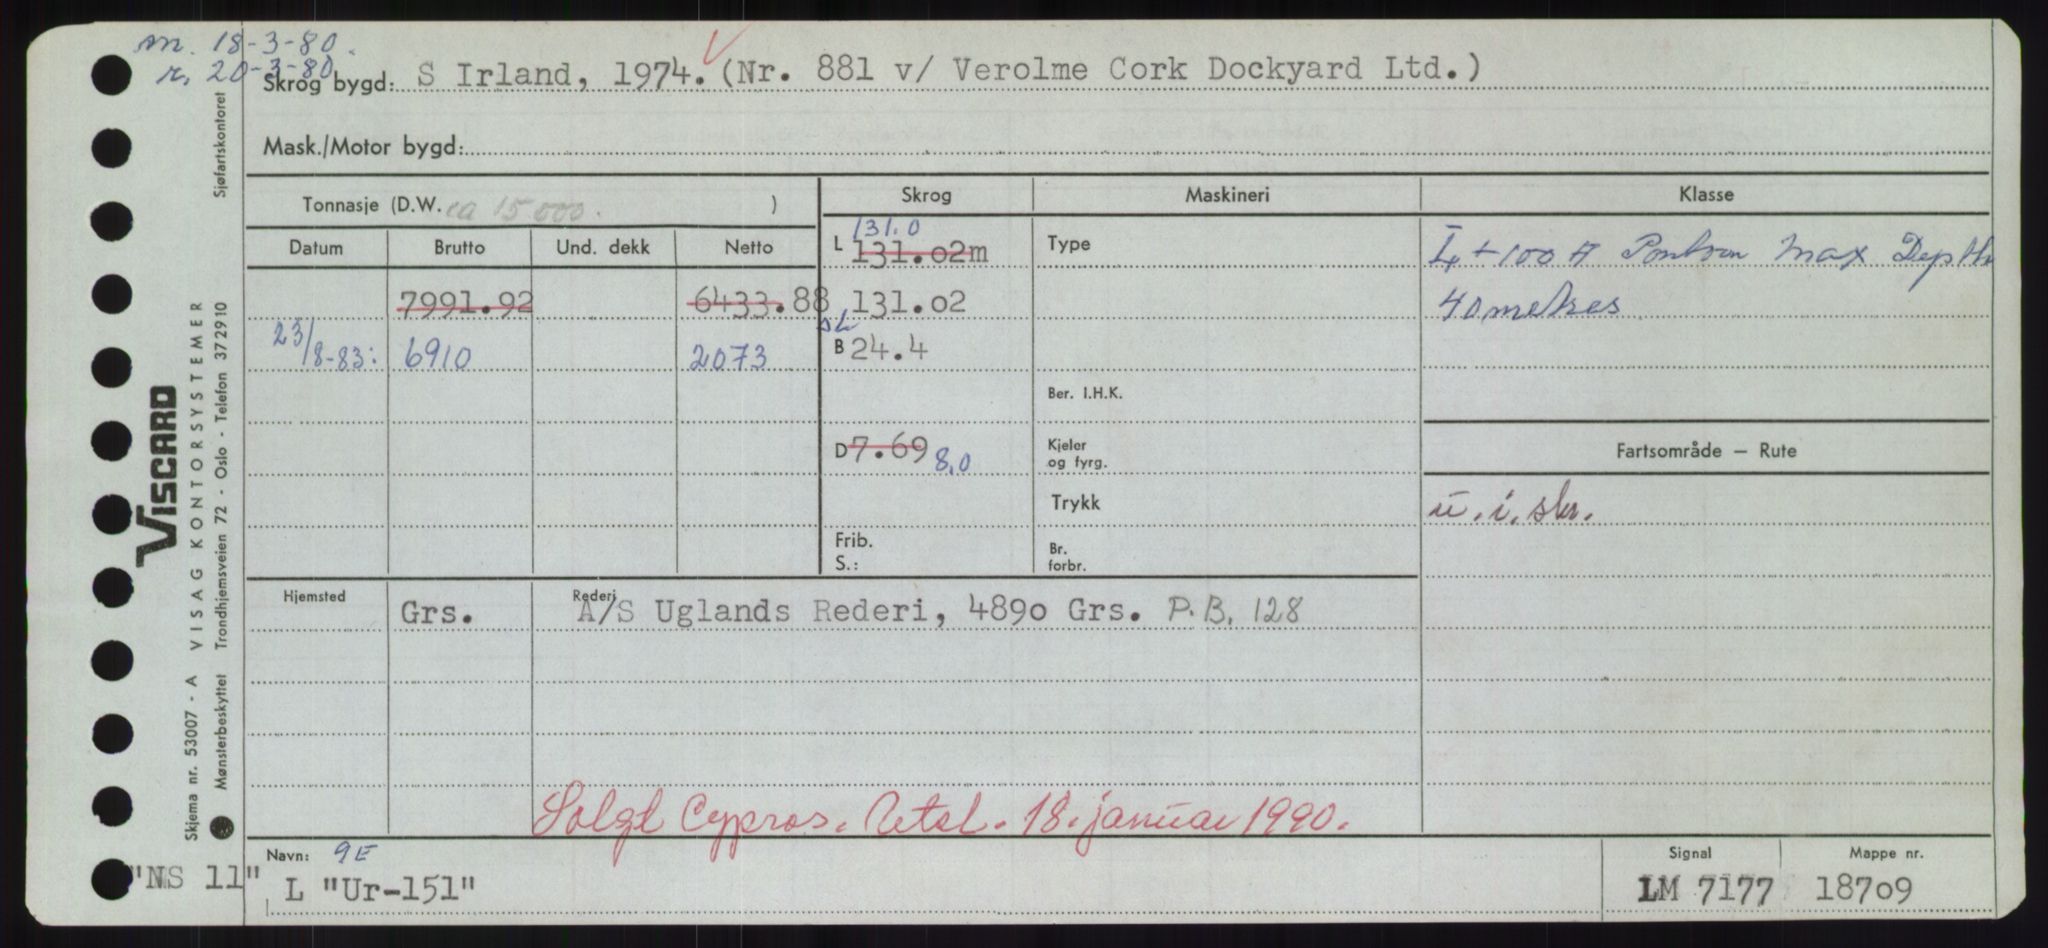 m. 18-3-80.
r. 20-3-80
Skrog bygd: S Irland, 1974. (Nr. 881 v/ Verolme Cork Dockyard Ltd.)
Mask./Motor bygd:
Tonnasje (D.W. ca 15 000. )
Skrog Maskineri Klasse
Datum Brutto Und. dekk Netto
131.0
L 131.02m
Type
I + 100 A Pontoon Max Depth
7991.92 6433.88 131.02
40 metres
23/8-83: 6910 2073
B 24.4
Ber. I.H.K.
D 7.69 8.0
Kjeler
og fyrg.
Fartsområde — Rute
Trykk
u. i. skr.
Frib.
S.:
Br.
forbr.
Hjemsted Rederi
Grs. A/S Uglands Rederi, 4890 Grs. P.B. 128
Solgt Cypros. 18. januar 1990.
Navn: 9E
Signal Mappe nr.
"NS 11" L "Ur-151" LM 7177 18709
VISCARD
Skjema nr. 53007 - A VISAG KONTORSYSTEMER
Mønsterbeskyttet Trondhjemsveien 72 - Oslo - Telefon 372910 Sjøfartskontoret